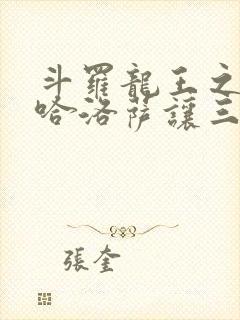 斗羅龍王之
哈洛薩讓三
張奎